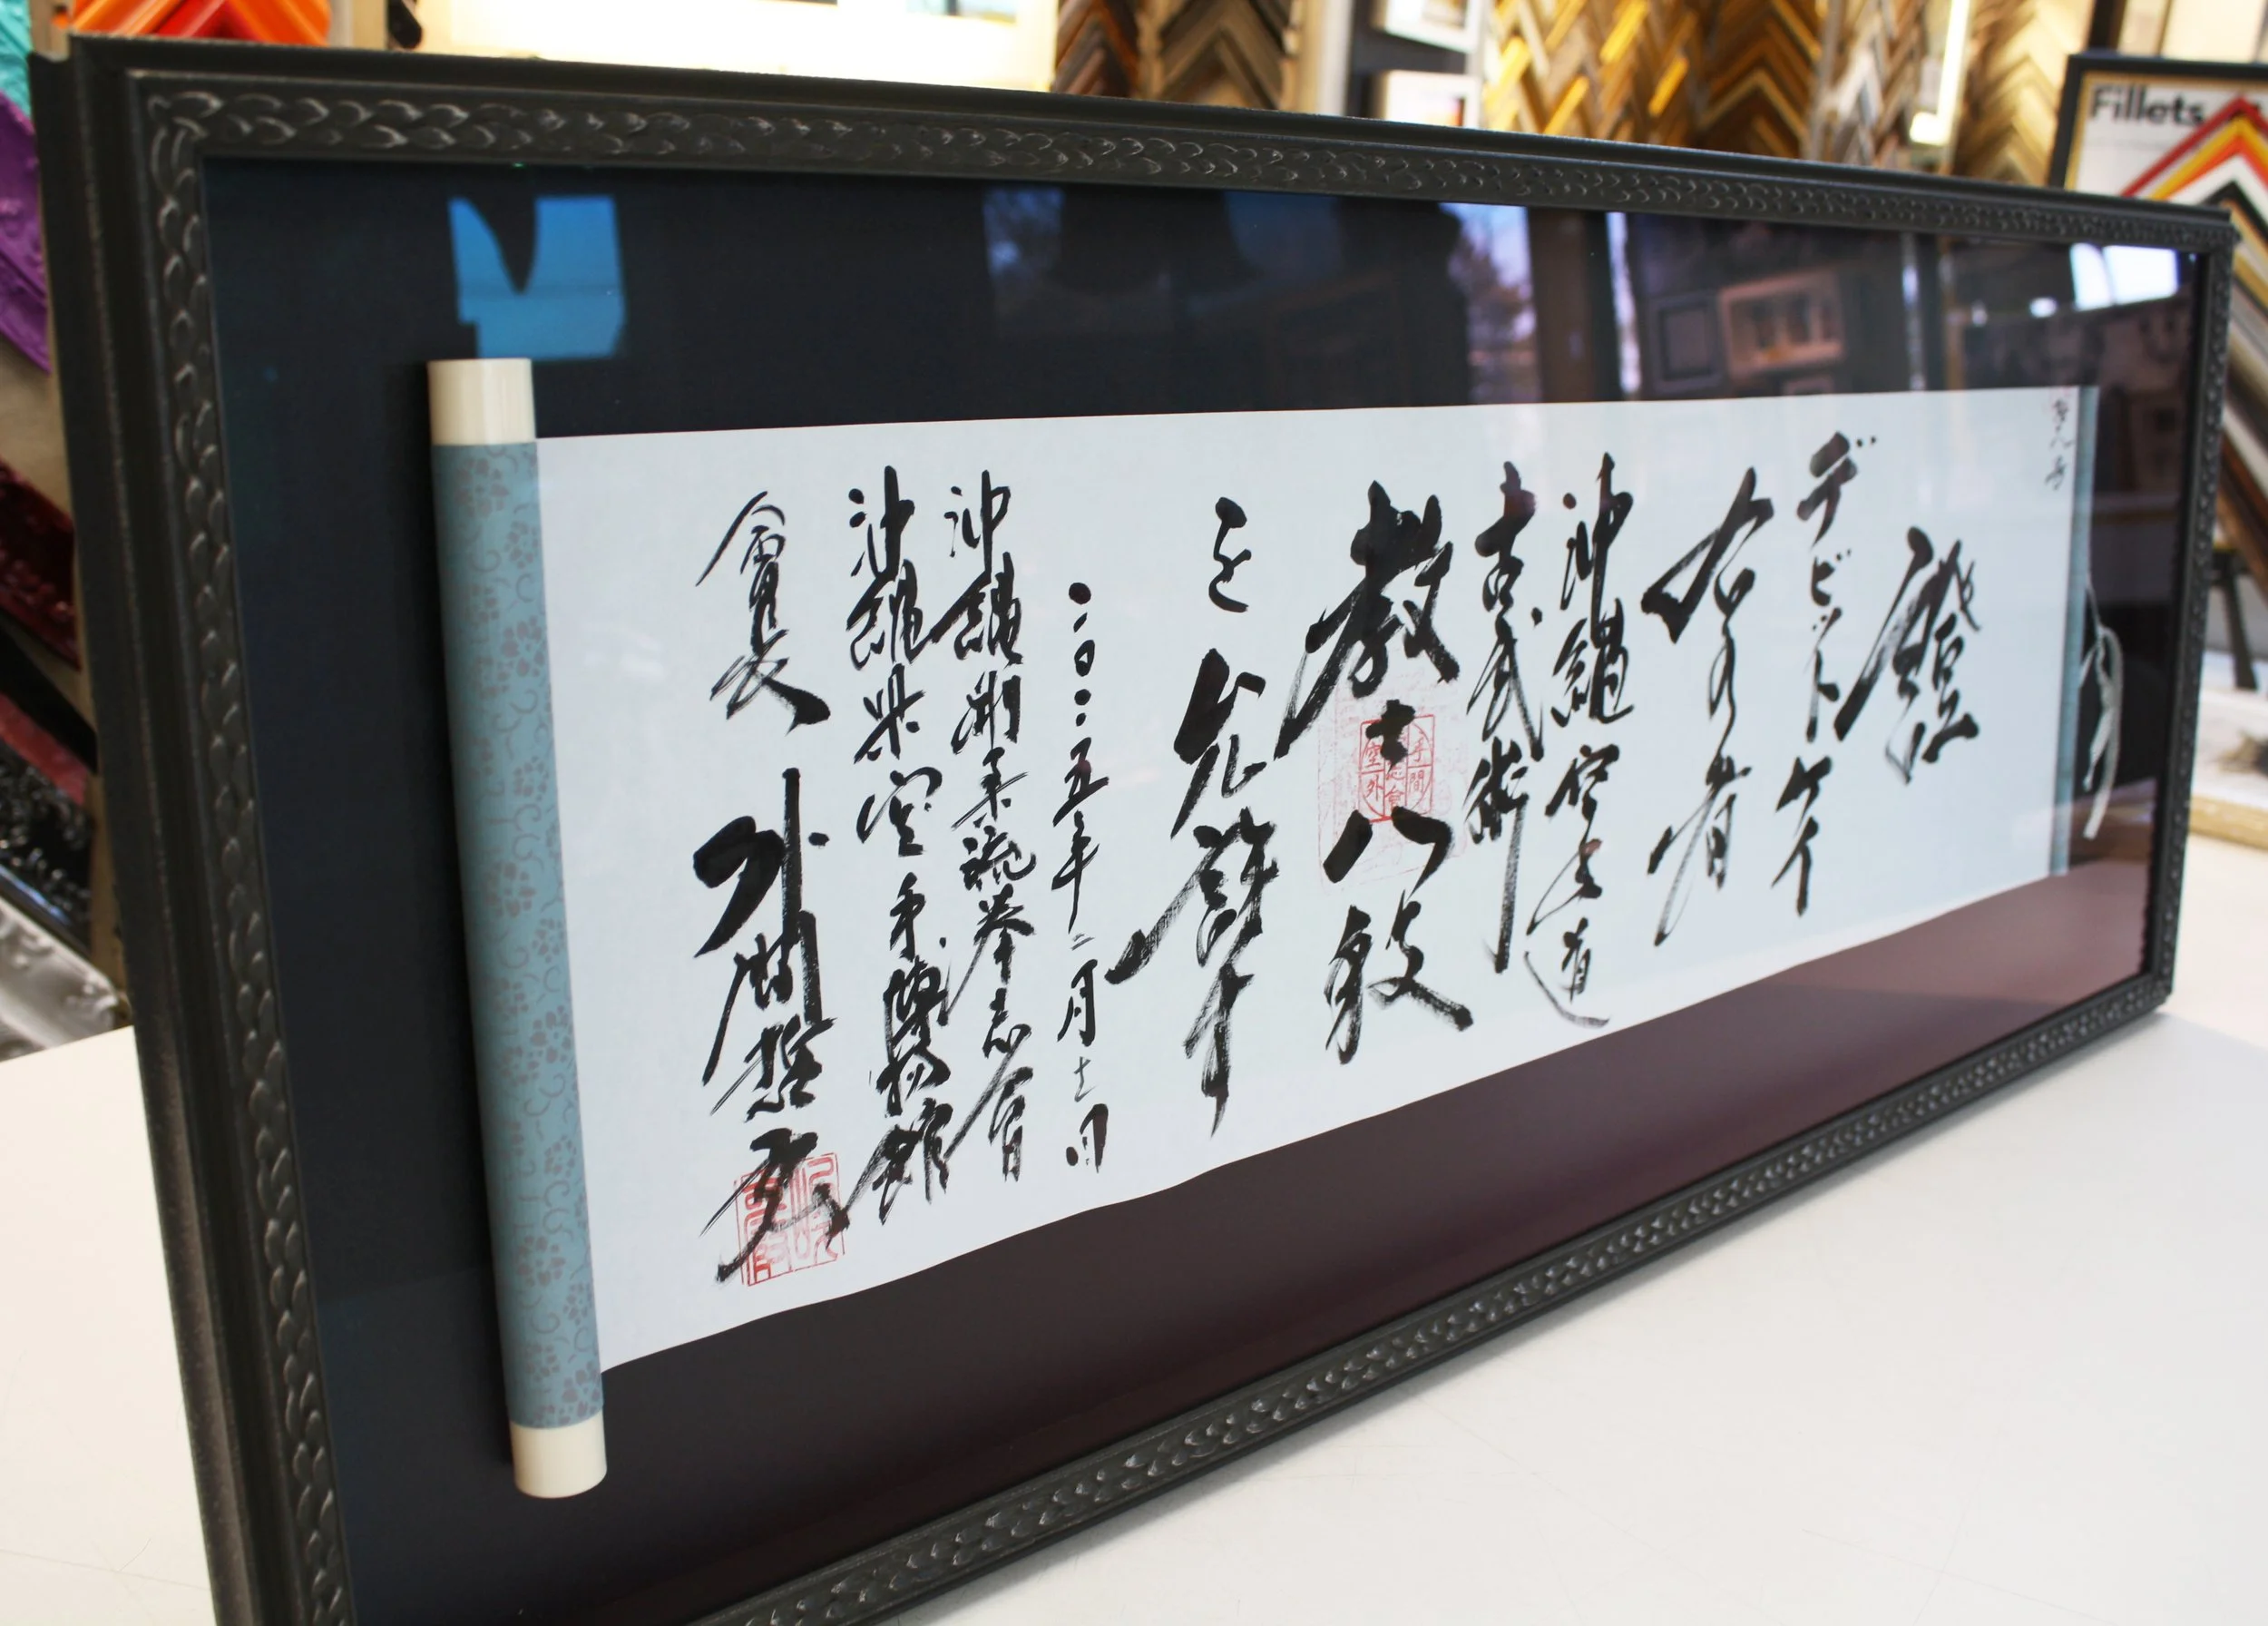 第八号
證
デビット ケイ
右の者
沖縄空手道
古武術
教士八段
を允許す
二〇〇五年二月十二日
沖縄剛柔流拳志会
沖縄県空手博物館
會長 外間哲弘
Fillets